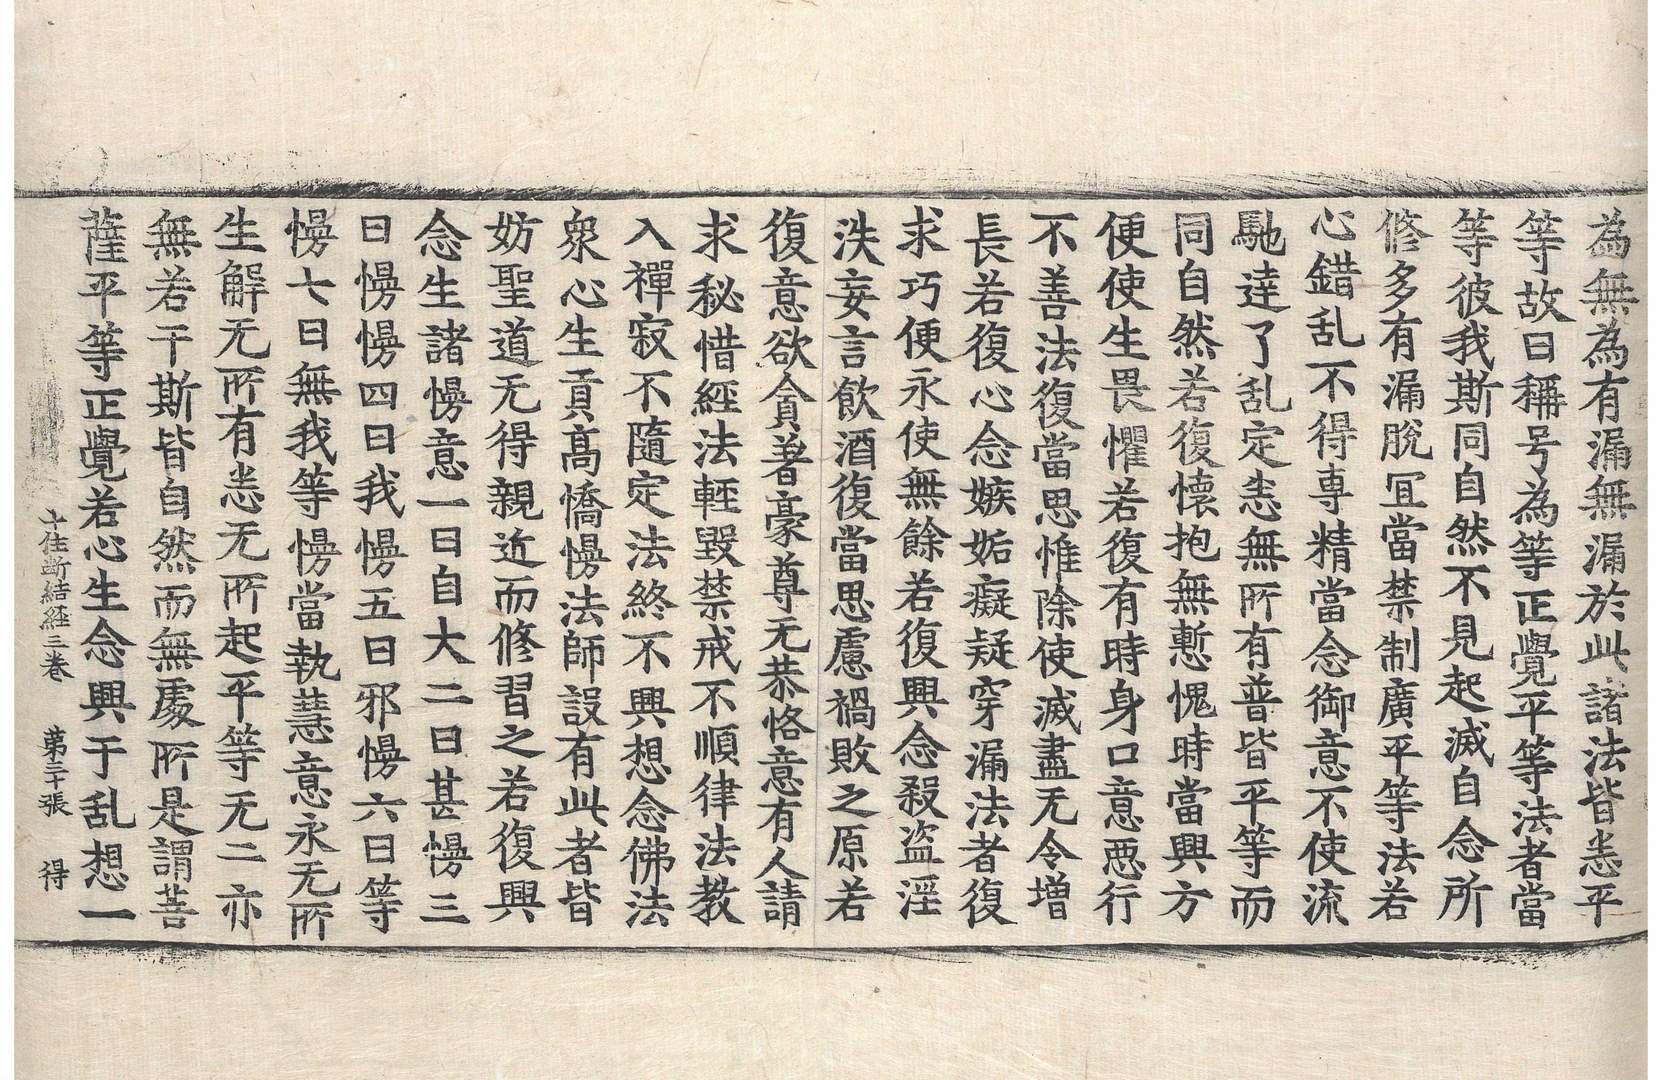 為無為有漏無漏於此諸法皆悉平
等故曰稱号為等正覺平等法者當
等彼我斯同自然不見起滅自念所
修多有漏脫冝當禁制廣平等法若
心錯乱不得専精當念御意不使流
馳達了乱定悉無所有普皆平等而
同自然若復懷抱無慙愧時當興方
便使生畏懼若復有時身口意惡行
不善法復當思惟除使滅盡无令增
長若復心念嫉妬癡疑穿漏法者復
求巧便永使無餘若復興念殺盜淫
泆妄言飲酒復當思慮禍敗之原若
復意欲貪著豪尊无恭恪意有人請
求秘惜經法輕毀禁戒不順律法教
入禪寂不隨定法終不興想念佛法
衆心生貢高憍慢法師設有此者皆
妨聖道无得親近而修習之若復興
念生諸慢意一曰自大二曰甚慢三
曰慢慢四曰我慢五曰邪慢六曰等
慢七曰無我等慢當執慧意永无所
生解无所有悉无所起平等无二亦
無若干斯皆自然而無處所是謂菩
薩平等正覺若心生念興于乱想一
十住断結経三巻 第三十張 得